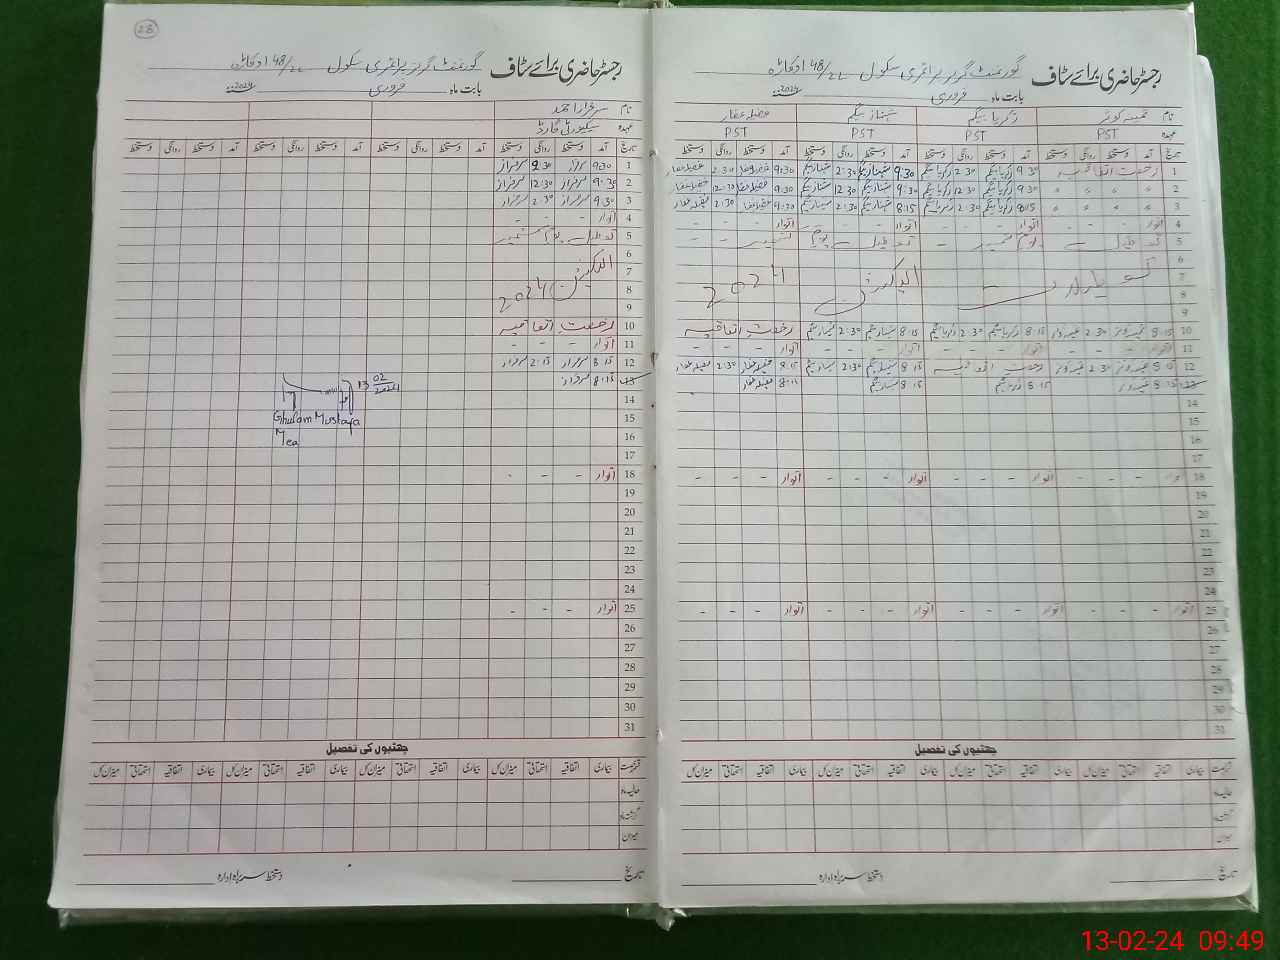 رجسٹر حاضری برائے سٹاف گورنمنٹ گرلز پرائمری سکول 48/2L اوکاڑہ
بابت ماہ فروری 2024
نام ثمینہ کوثر زکریا بیگم شہناز بیگم
عہدہ PST PST PST PST
تاریخ آمد دستخط روانگی دستخط آمد دستخط روانگی دستخط آمد دستخط روانگی دستخط آمد دستخط روانگی دستخط
1 رخصت اتفاقیہ 9:30 زکریا بیگم 2:30 زکریا بیگم 9:30 شہناز بیگم 2:30 شہناز بیگم 9:30 2:30
2 " " " 9:30 زکریا بیگم 12:30 زکریا بیگم 9:30 شہناز بیگم 12:30 شہناز بیگم 9:30 12:30
3 " " " 8:15 زکریا بیگم 2:30 زکریا بیگم 8:15 شہناز بیگم 2:30 شہناز بیگم 9:30 2:30
4 اتوار - - - اتوار - - - اتوار - - - اتوار - - -
5 تعطیل - یوم کشمیر - تعطیل - یوم کشمیر - -
6
7 الیکشن 2024
8
9
10 8:15 2:30 8:15 زکریا بیگم 2:30 زکریا بیگم 8:15 شہناز بیگم 2:30 شہناز بیگم رخصت اتفاقیہ
11 اتوار - - - اتوار - - - اتوار - - - اتوار - - -
12 8:15 2:30 رخصت اتفاقیہ 8:15 شہناز بیگم 2:30 شہناز بیگم 8:15 2:30
13 8:15 8:15 زکریا بیگم 8:15 شہناز بیگم 8:15
14
15
16
17
18 اتوار - - - اتوار - - - اتوار - - - اتوار - - -
19
20
21
22
23
24
25 اتوار - - - اتوار - - - اتوار - - - اتوار - - -
26
27
28
29
30
31
چھٹیوں کی تفصیل
بیماری اتفاقیہ استحقاقی میزان کل بیماری اتفاقیہ استحقاقی میزان کل بیماری اتفاقیہ استحقاقی میزان کل بیماری اتفاقیہ استحقاقی میزان کل
حالیہ ماہ
گزشتہ ماہ
میزان
تاریخ دستخط سربراہ ادارہ
28
رجسٹر حاضری برائے سٹاف گورنمنٹ گرلز پرائمری سکول 48/2L اوکاڑہ
بابت ماہ فروری 2024
نام سرفراز احمد
عہدہ سیکیورٹی گارڈ
تاریخ آمد دستخط روانگی دستخط آمد دستخط روانگی دستخط آمد دستخط روانگی دستخط آمد دستخط روانگی دستخط
1 9:30 سرفراز 2:30 سرفراز
2 9:30 سرفراز 12:30 سرفراز
3 9:30 سرفراز 2:30 سرفراز
4 اتوار - - -
5 تعطیل - یوم کشمیر
6
7 الیکشن 2024
8
9
10 رخصت اتفاقیہ
11 اتوار - - -
12 8:15 سرفراز 2:15 سرفراز
13 8:15 سرفراز
13 02 2024
14
15 Ghulam Mustafa
16 Mea
17
18 اتوار - - -
19
20
21
22
23
24
25 اتوار - - -
26
27
28
29
30
31
چھٹیوں کی تفصیل
بیماری اتفاقیہ استحقاقی میزان کل بیماری اتفاقیہ استحقاقی میزان کل بیماری اتفاقیہ استحقاقی میزان کل بیماری اتفاقیہ استحقاقی میزان کل
حالیہ ماہ
گزشتہ ماہ
میزان
تاریخ دستخط سربراہ ادارہ
13-02-24 09:49